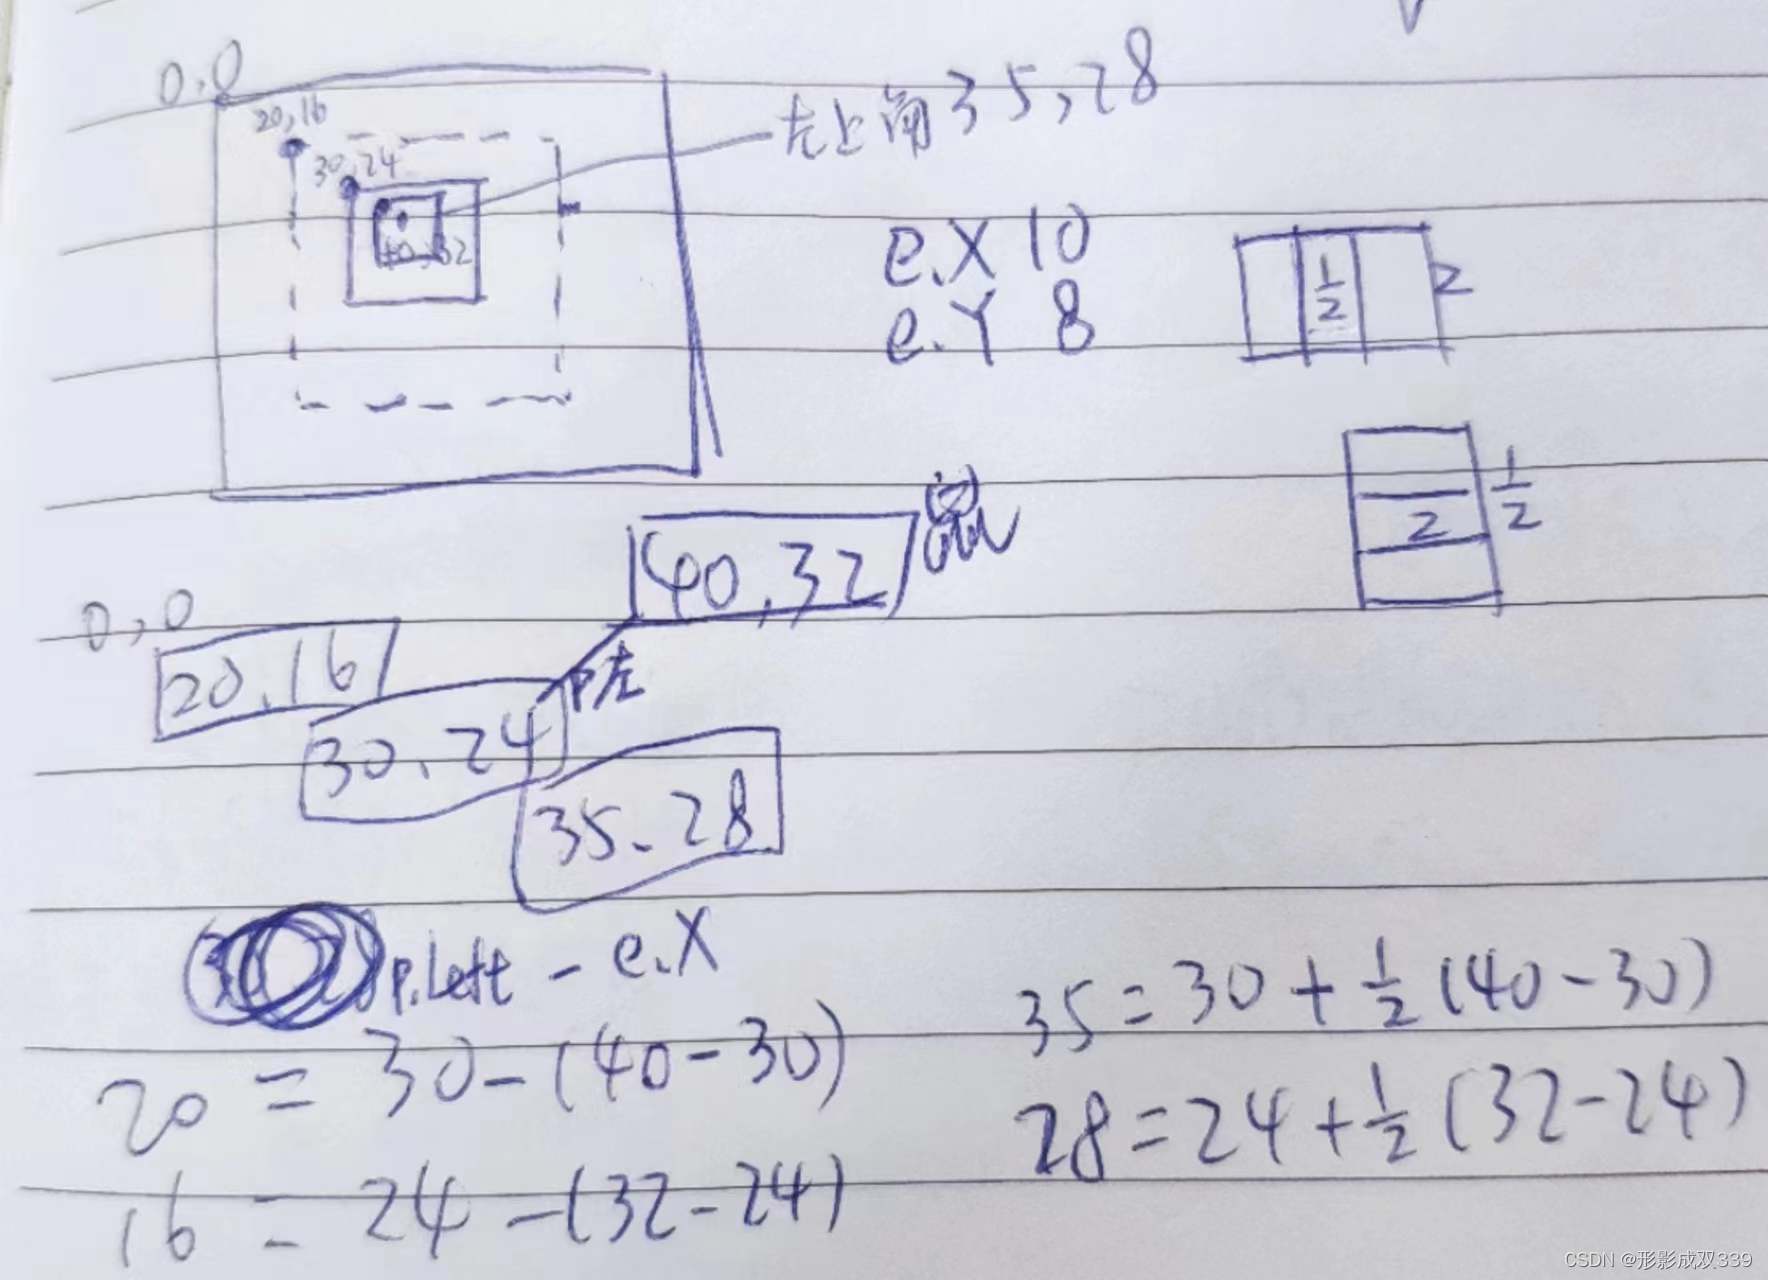 0,0
20,16
30,24
40,32
左上角35,28
e.X 10
e.Y 8
1/2
2
1/2
2
40,32
鼠
0,0
20,16
30,24
P左
35.28
P.Left - e.X
20 = 30-(40-30)
16 = 24-(32-24)
35=30+1/2(40-30)
28=24+1/2(32-24)
CSDN @形影成双339